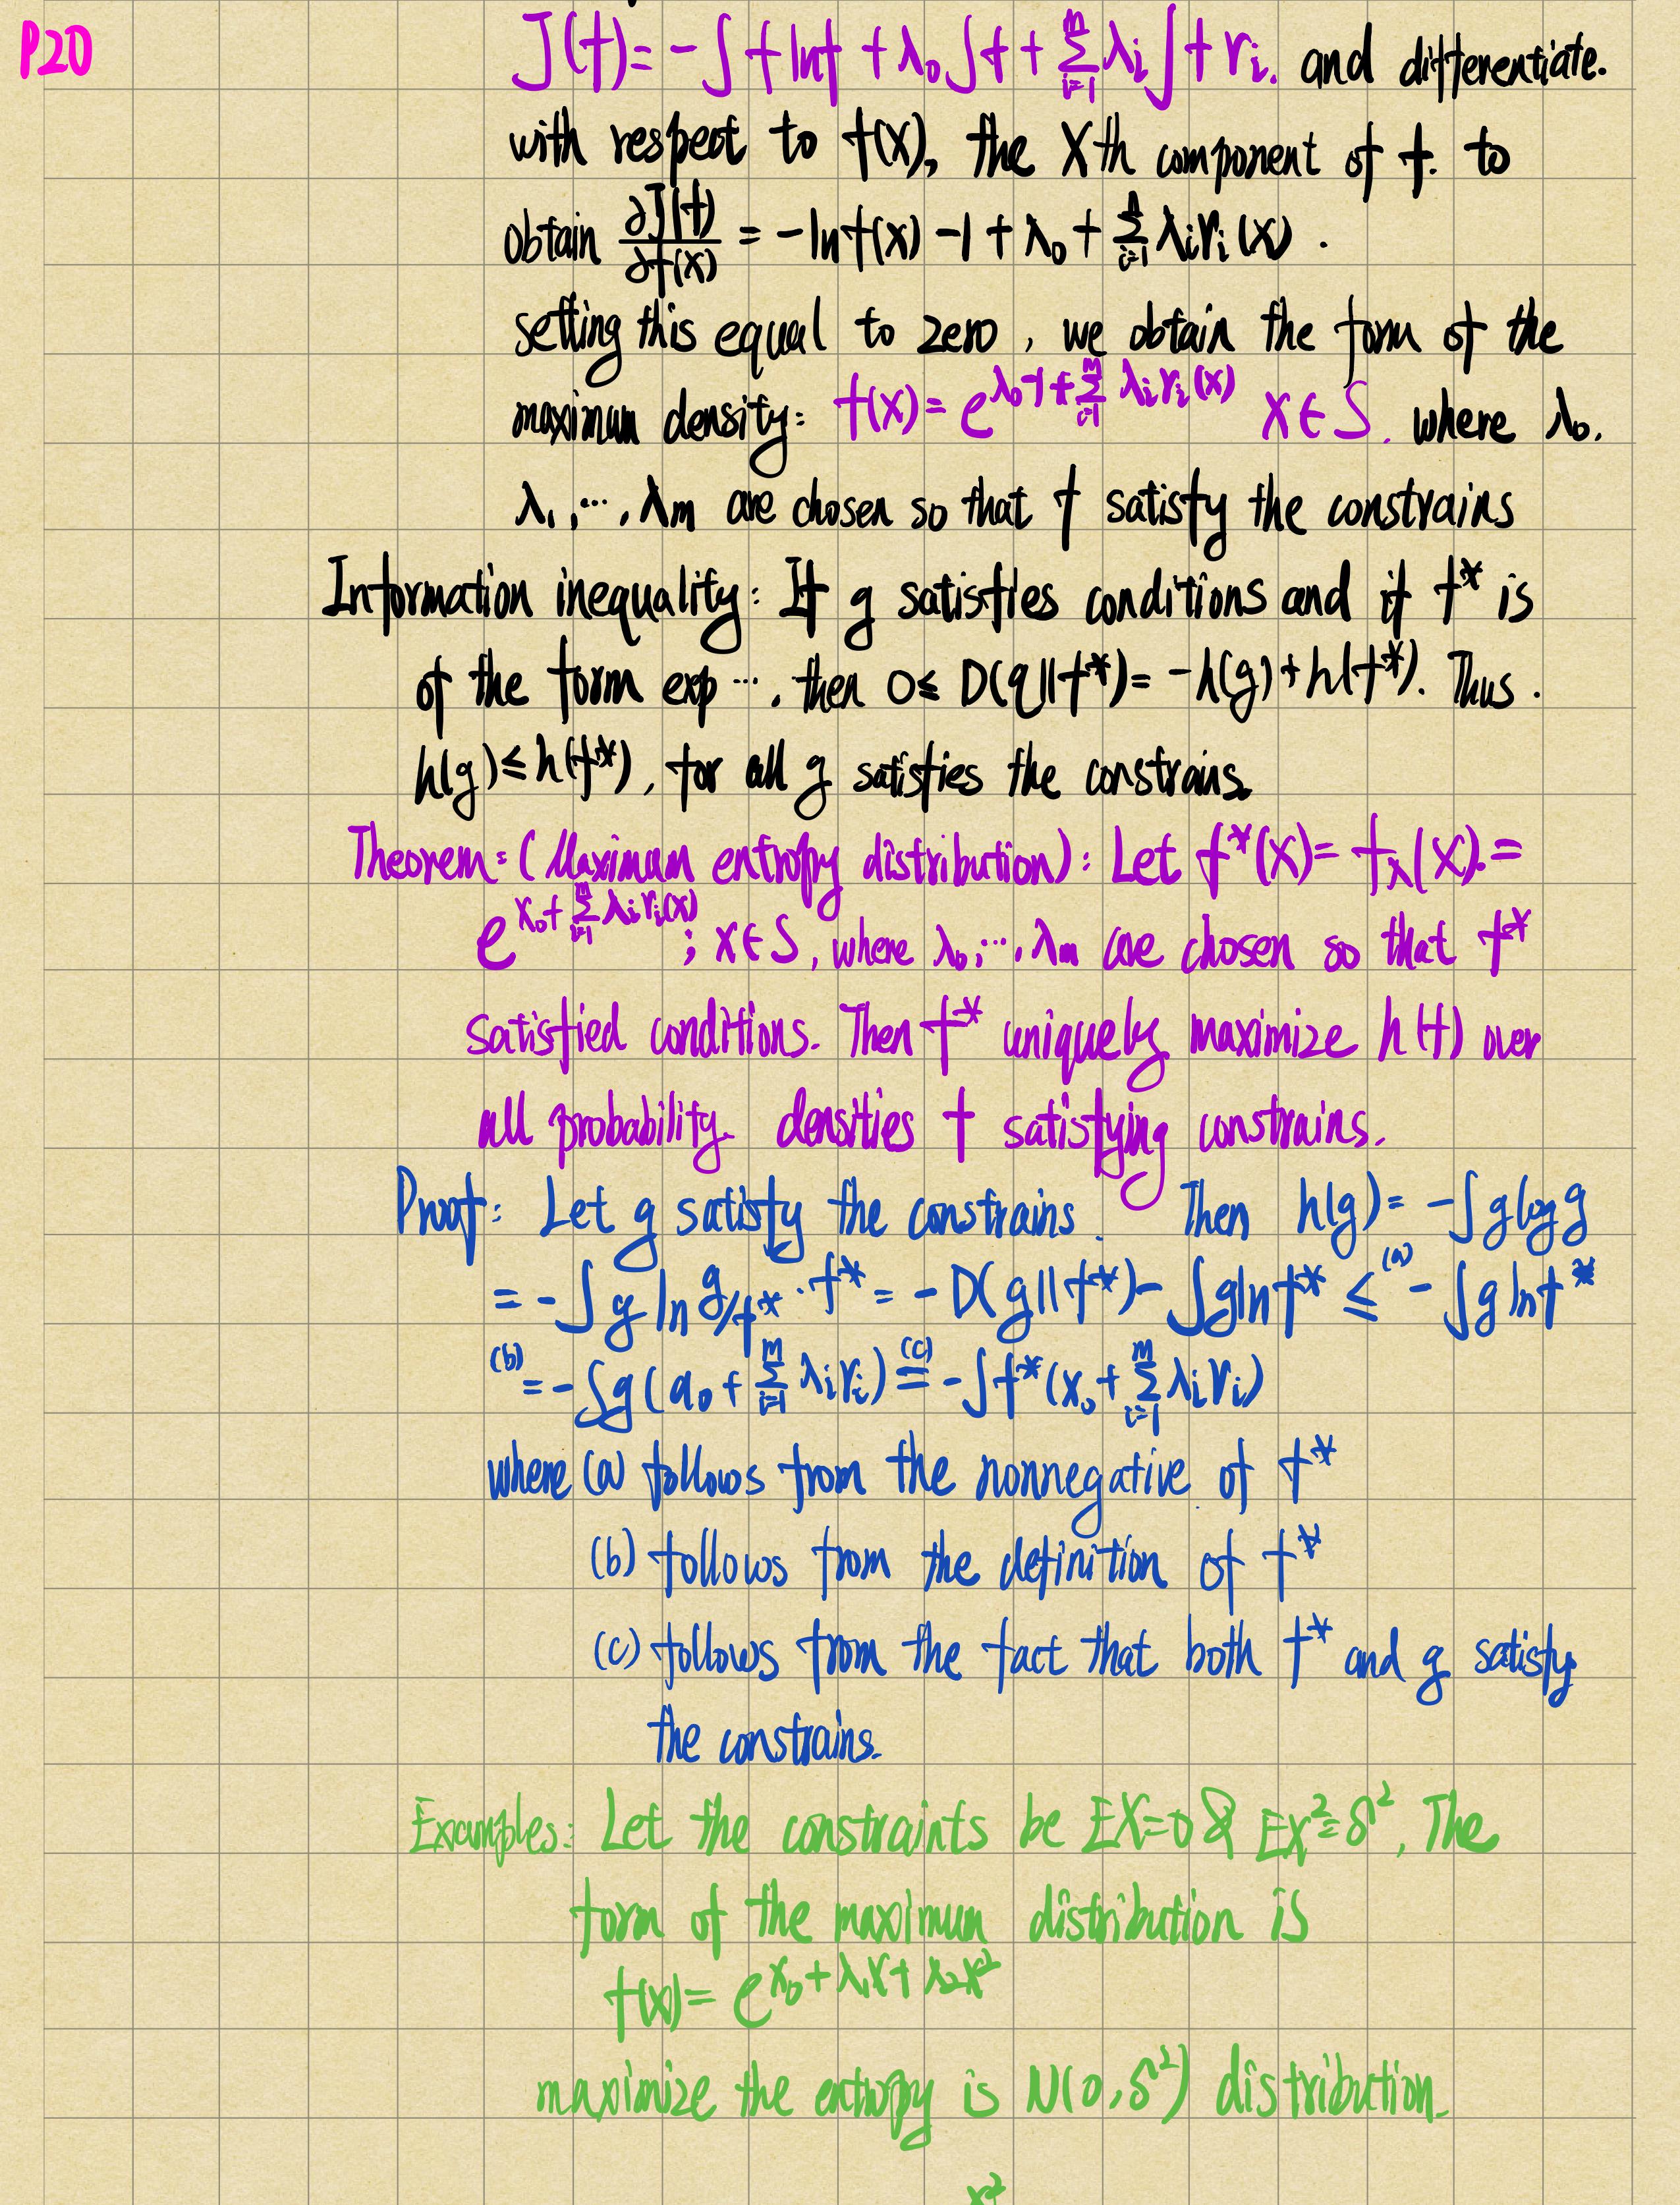 P20
J(f)= -∫ f lnf + λ₀∫f + Σᵢ₌₁ᵐ λᵢ∫f rᵢ. and differentiate.
with respect to f(x), the Xth component of f. to
obtain ∂J(f)/∂f(x) = -ln f(x) -1 + λ₀ + Σᵢ₌₁ⁿ λᵢrᵢ(x).
setting this equal to zero, we obtain the form of the
maximum density: f(x)= e^{λ₀-1+Σᵢ₌₁ᵐ λᵢrᵢ(x)} X∈S. where λ₀.
λ₁,⋯,λm are chosen so that f satisfy the constrains
Information inequality: If g satisfies conditions and if f* is
of the form exp⋯, then 0≤ D(g||f*)= -h(g)+h(f*). Thus.
h(g)≤h(f*), for all g satisfies the constrains
Theorem:(Maximum entropy distribution): Let f*(x)= fλ(x).=
e^{x₀+Σᵢ₌₁ᵐ λᵢrᵢ(x)}; x∈S, where λ₀,⋯,λm are chosen so that f*
satisfied conditions. Then f* uniquely maximize h(f) over
all probability densities f satisfying constrains.
Proof: Let g satisfy the constrains. Then h(g)= -∫g log g
= -∫g ln g/f* · f* = -D(g||f*)-∫g ln f* ≤^{(a)} -∫g ln f*
(b)= -∫g(a₀+Σᵢ₌₁ᵐ λᵢrᵢ) =^{(c)} -∫f*(x₀+Σᵢ₌₁ᵐ λᵢrᵢ)
where (a) follows from the nonnegative of f*
(b) follows from the definition of f*
(c) follows from the fact that both f* and g satisfy
the constrains.
Examples: Let the constraints be EX=0 & EX²=δ², The
form of the maximum distribution is
f(x)= e^{x₀+λ₁x+λ₂x²}
maximize the entropy is N(0,δ²) distribution.
x²